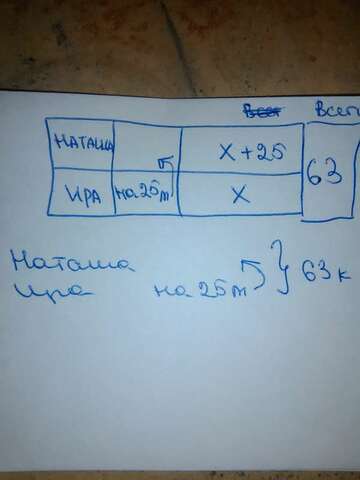 Всего
НАТАША X+25 63
ИРА на 25 т X
Наташа
Ира на 25 т 63 к